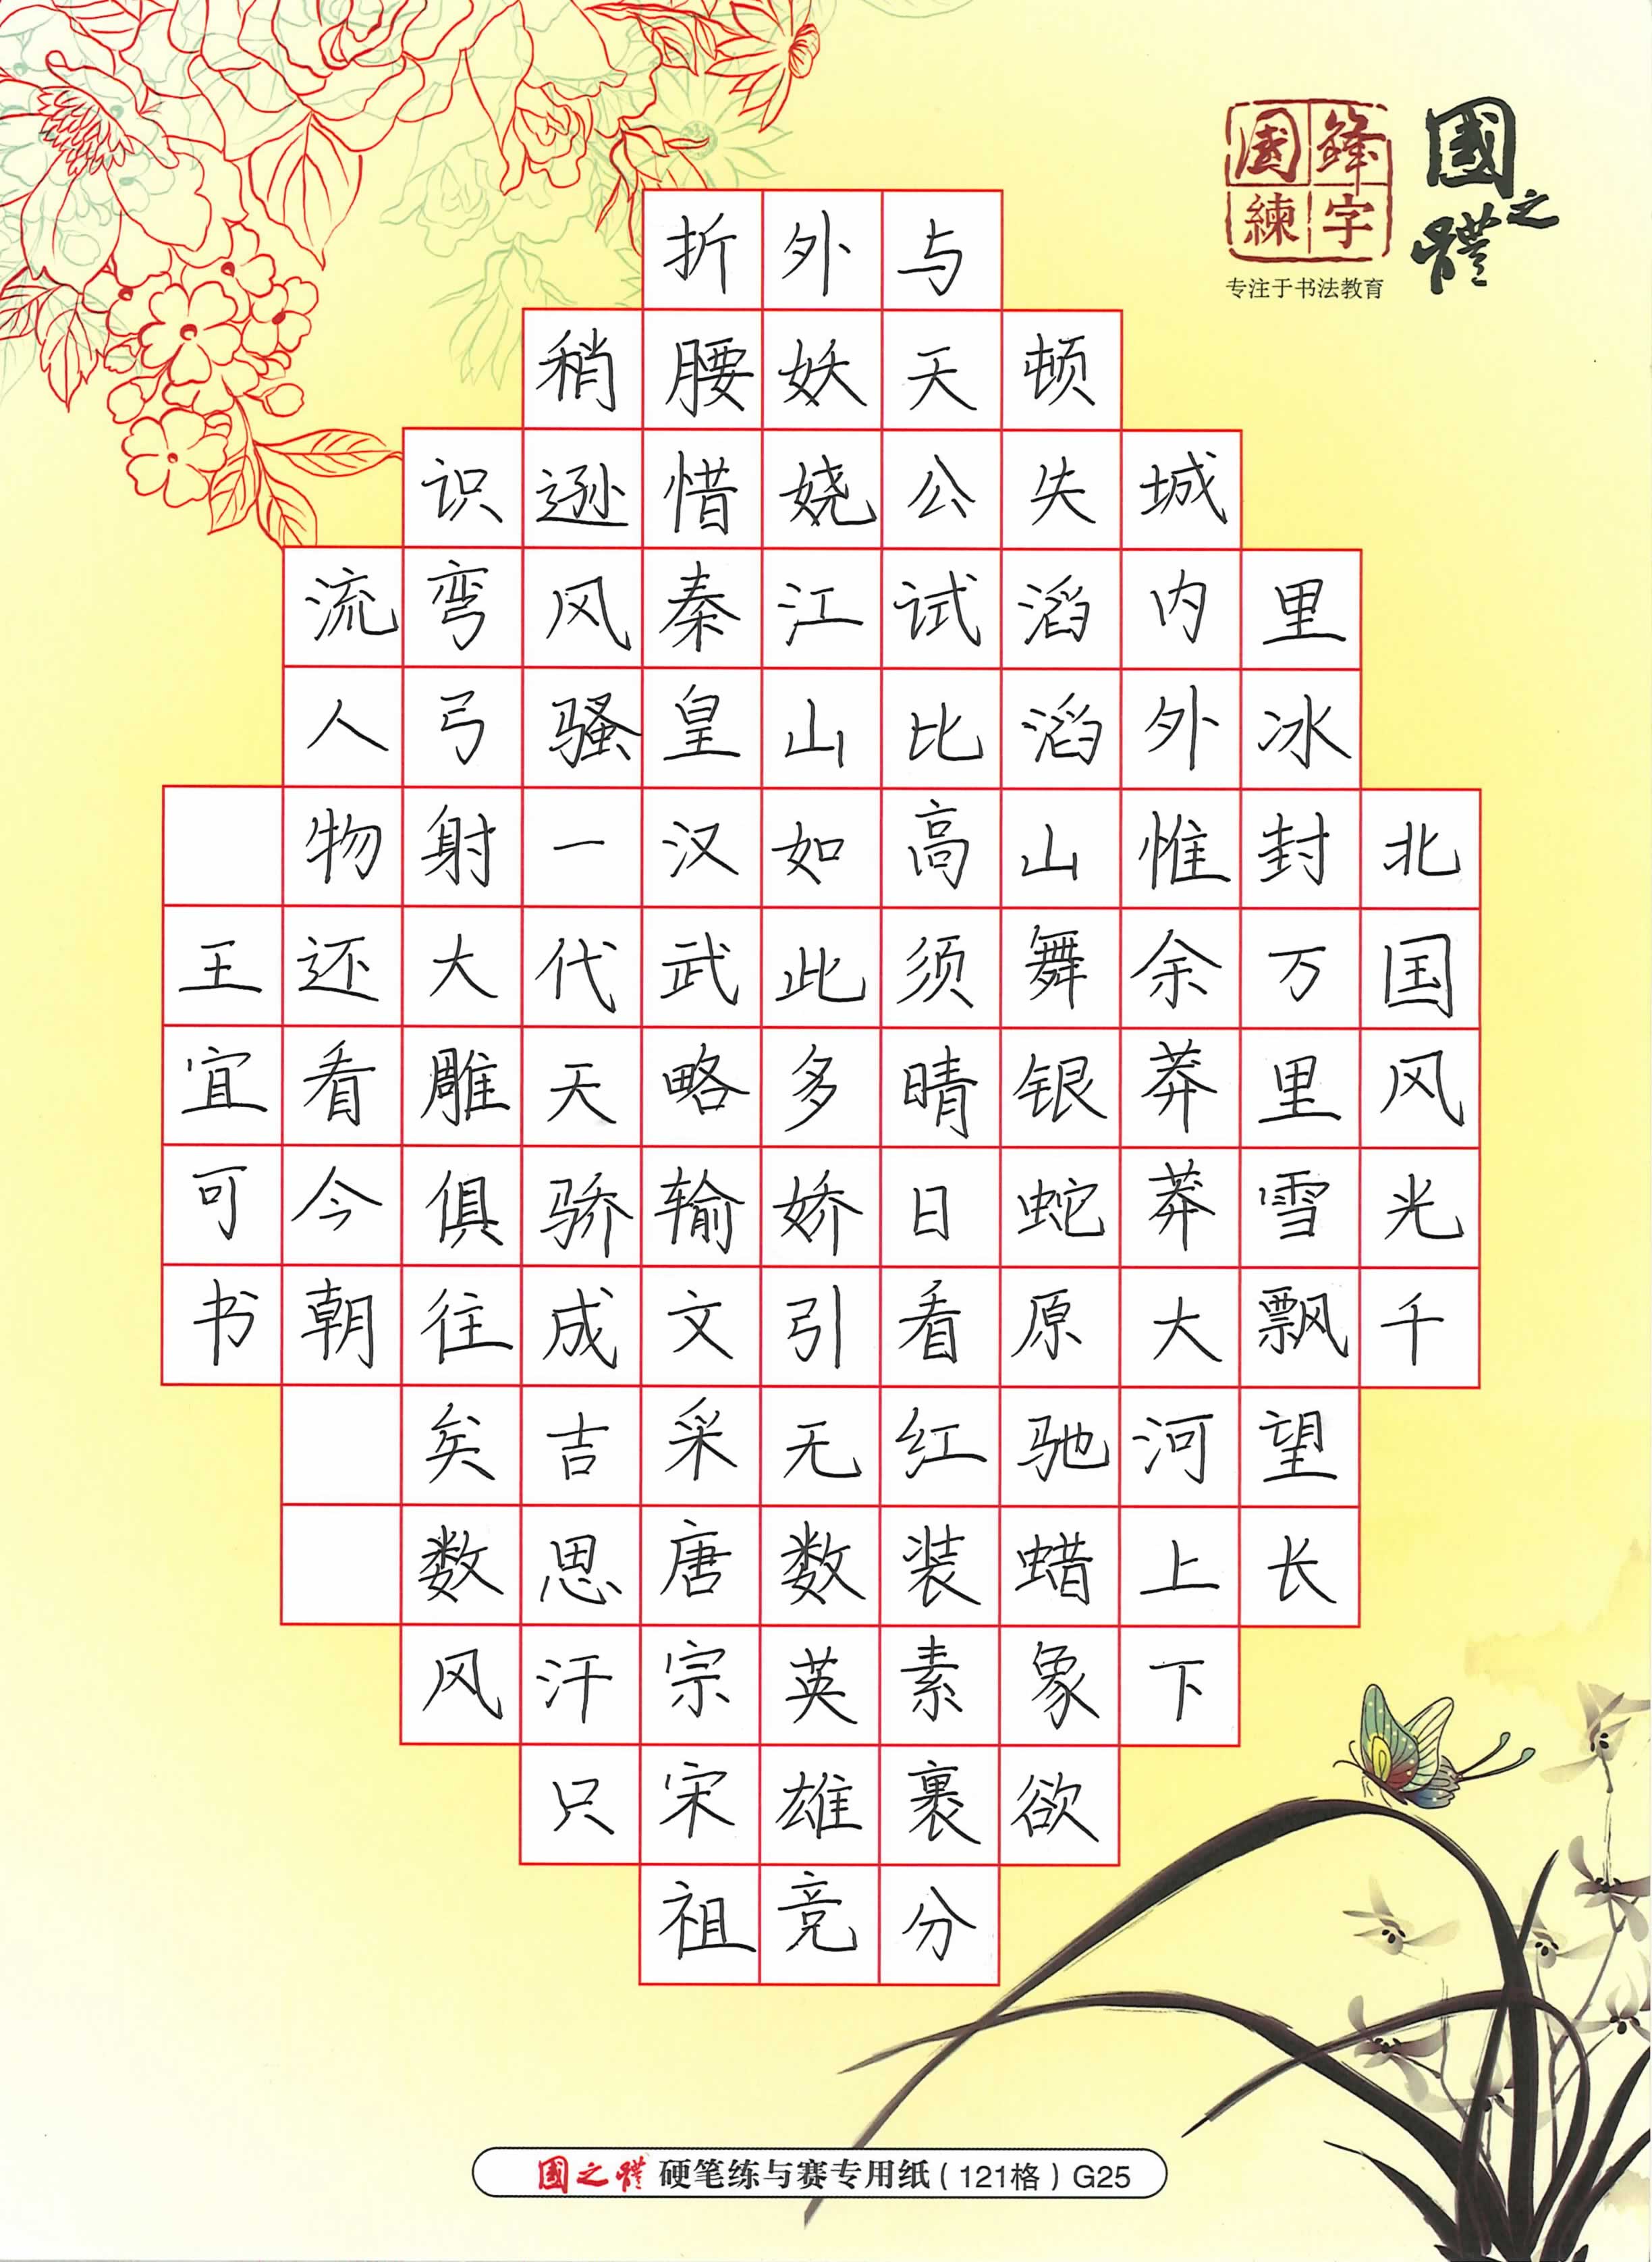 國鋒
練字
专注于书法教育
國之體
北国风光千
里冰封万里雪飘望长
城内外惟余莽莽大河上下
顿失滔滔山舞银蛇原驰蜡象欲
与天公试比高须晴日看红装素裹分
外妖娆江山如此多娇引无数英雄竞
折腰惜秦皇汉武略输文采唐宗宋祖
稍逊风骚一代天骄成吉思汗只
识弯弓射大雕俱往矣数风
流人物还看今朝
王宜可书
國之體 硬笔练与赛专用纸(121格)G25